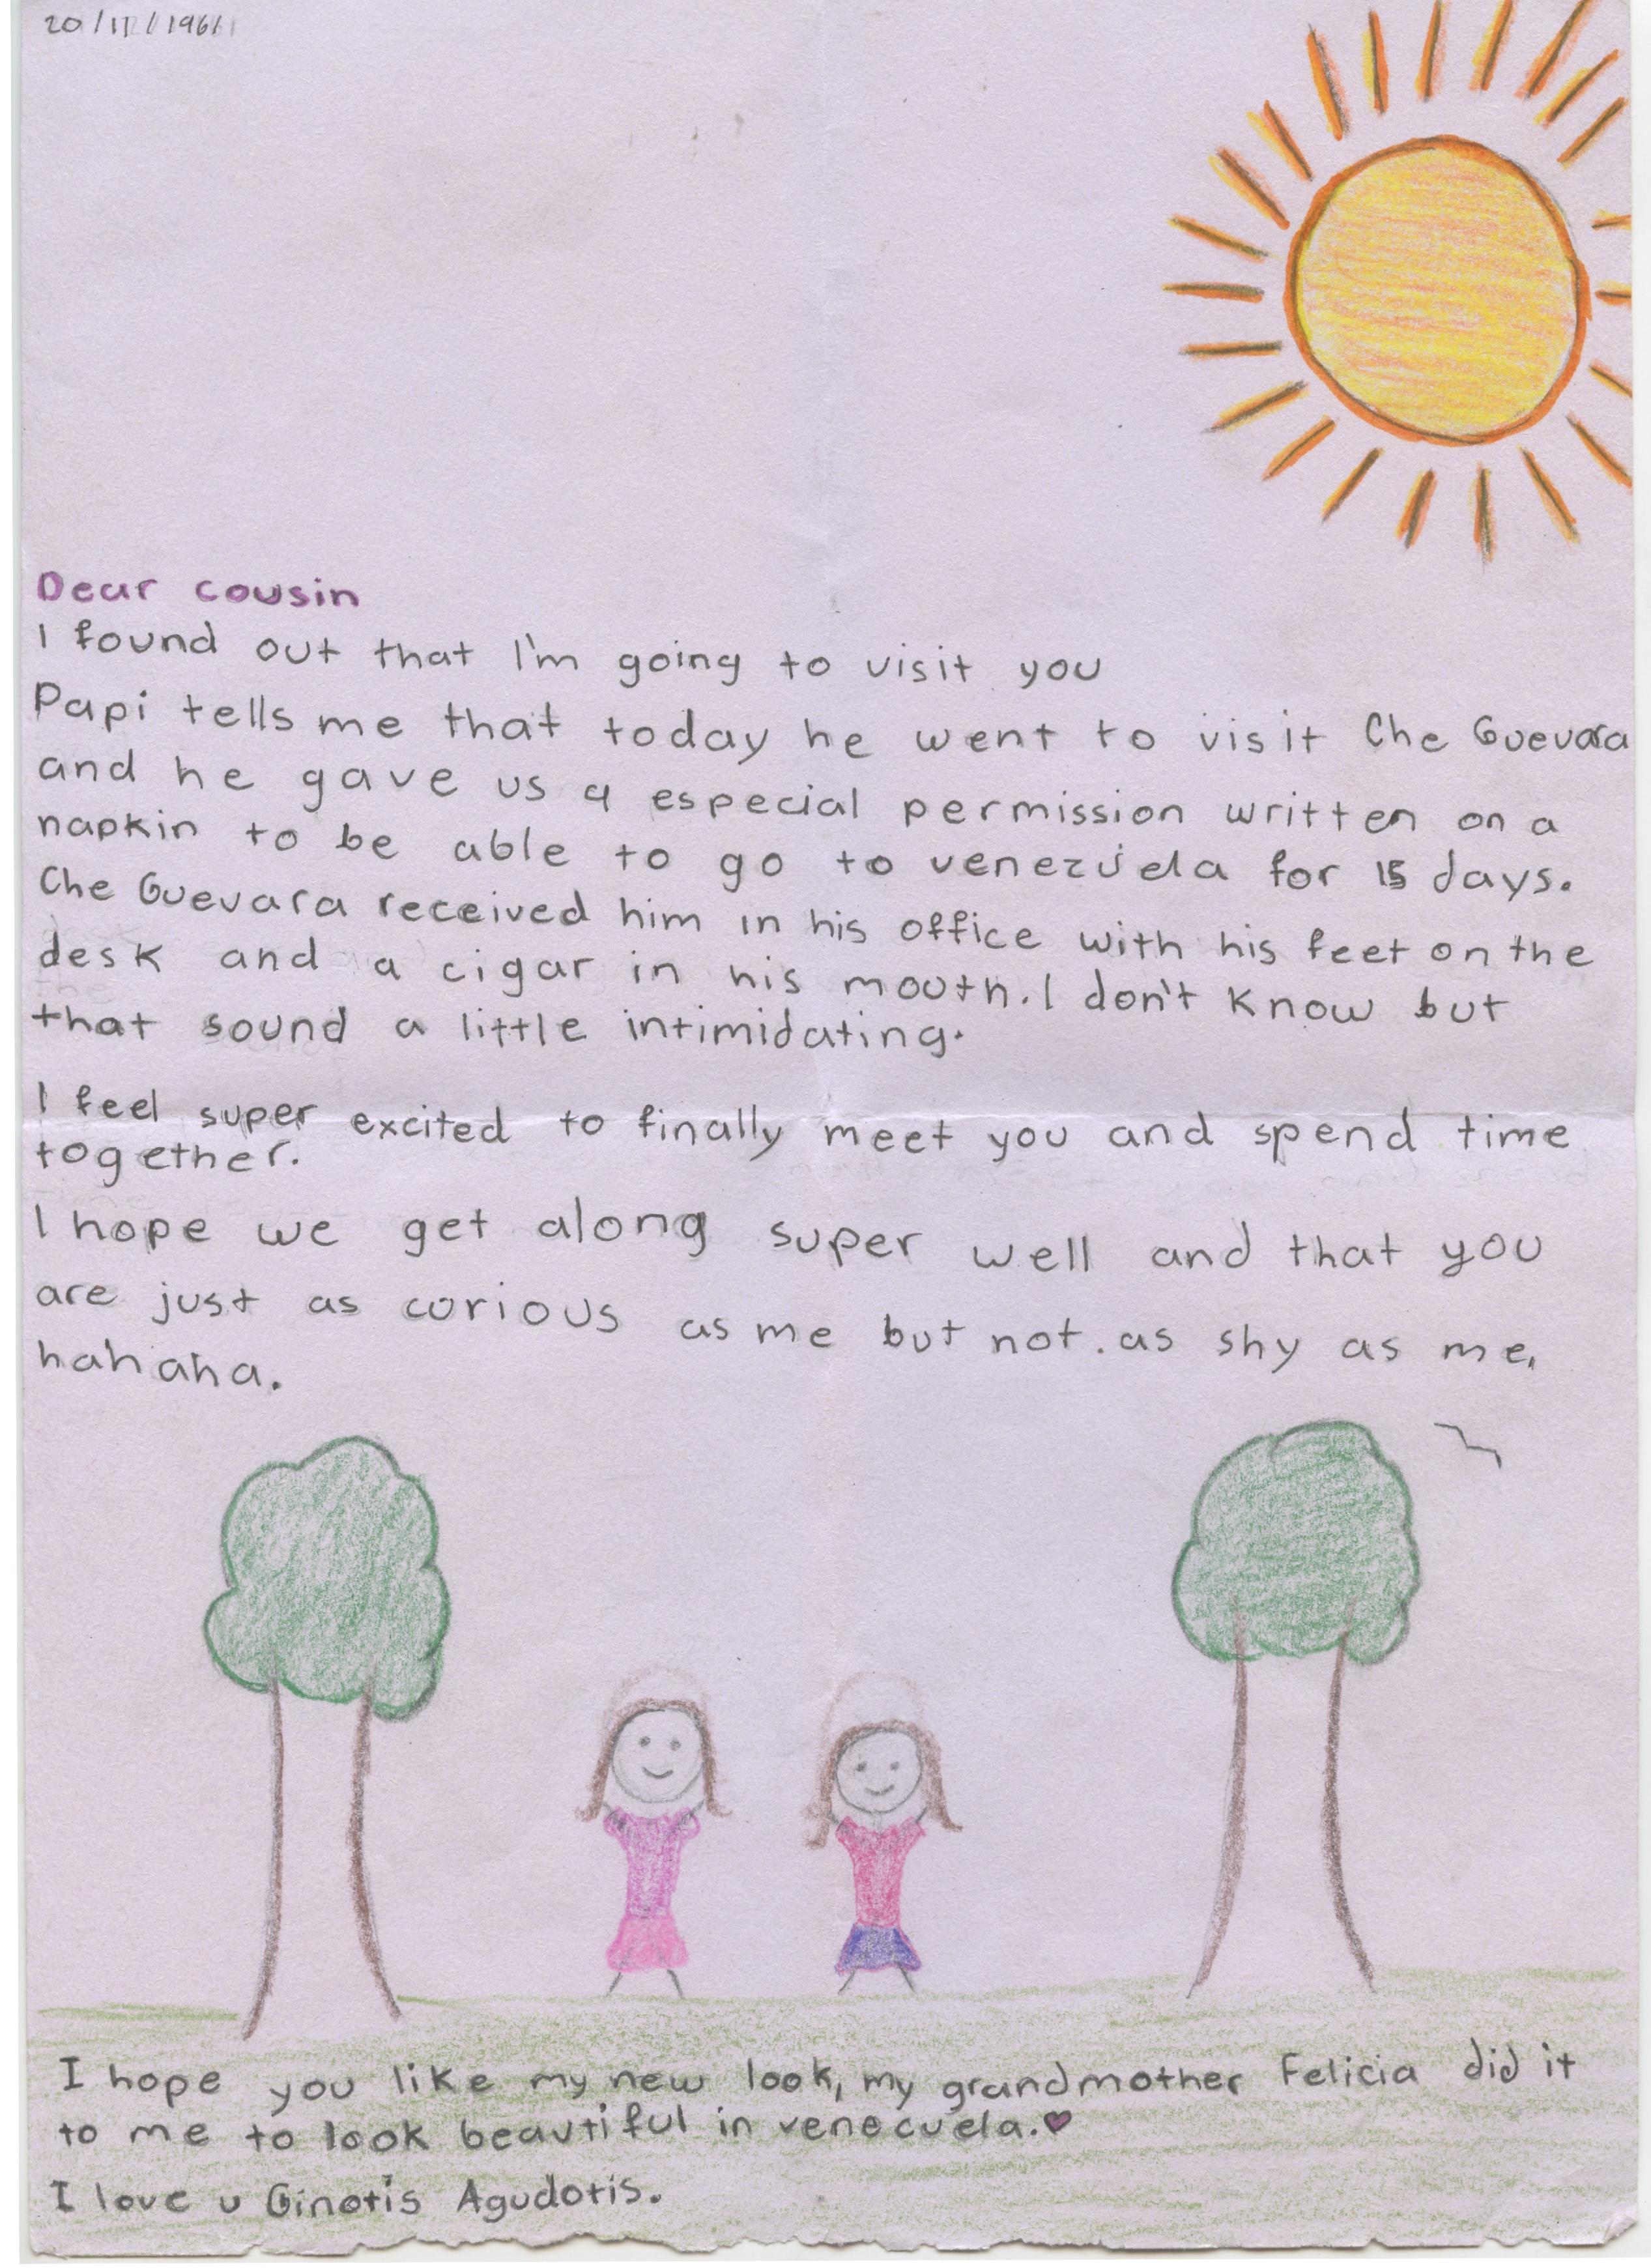 20/11/1961
Dear cousin
I found out that I'm going to visit you
Papi tells me that today he went to visit Che Guevara
and he gave us a especial permission written on a
napkin to be able to go to venezuela for 15 days.
Che Guevara received him in his office with his feet on the
desk and a cigar in his mouth. I don't know but
that sound a little intimidating.
I feel super excited to finally meet you and spend time
together.
I hope we get along super well and that you
are just as curious as me but not. as shy as me.
hahaha.
I hope you like my new look, my grandmother Felicia did it
to me to look beautiful in venecuela.♥
I love u Ginotis Agudotis.